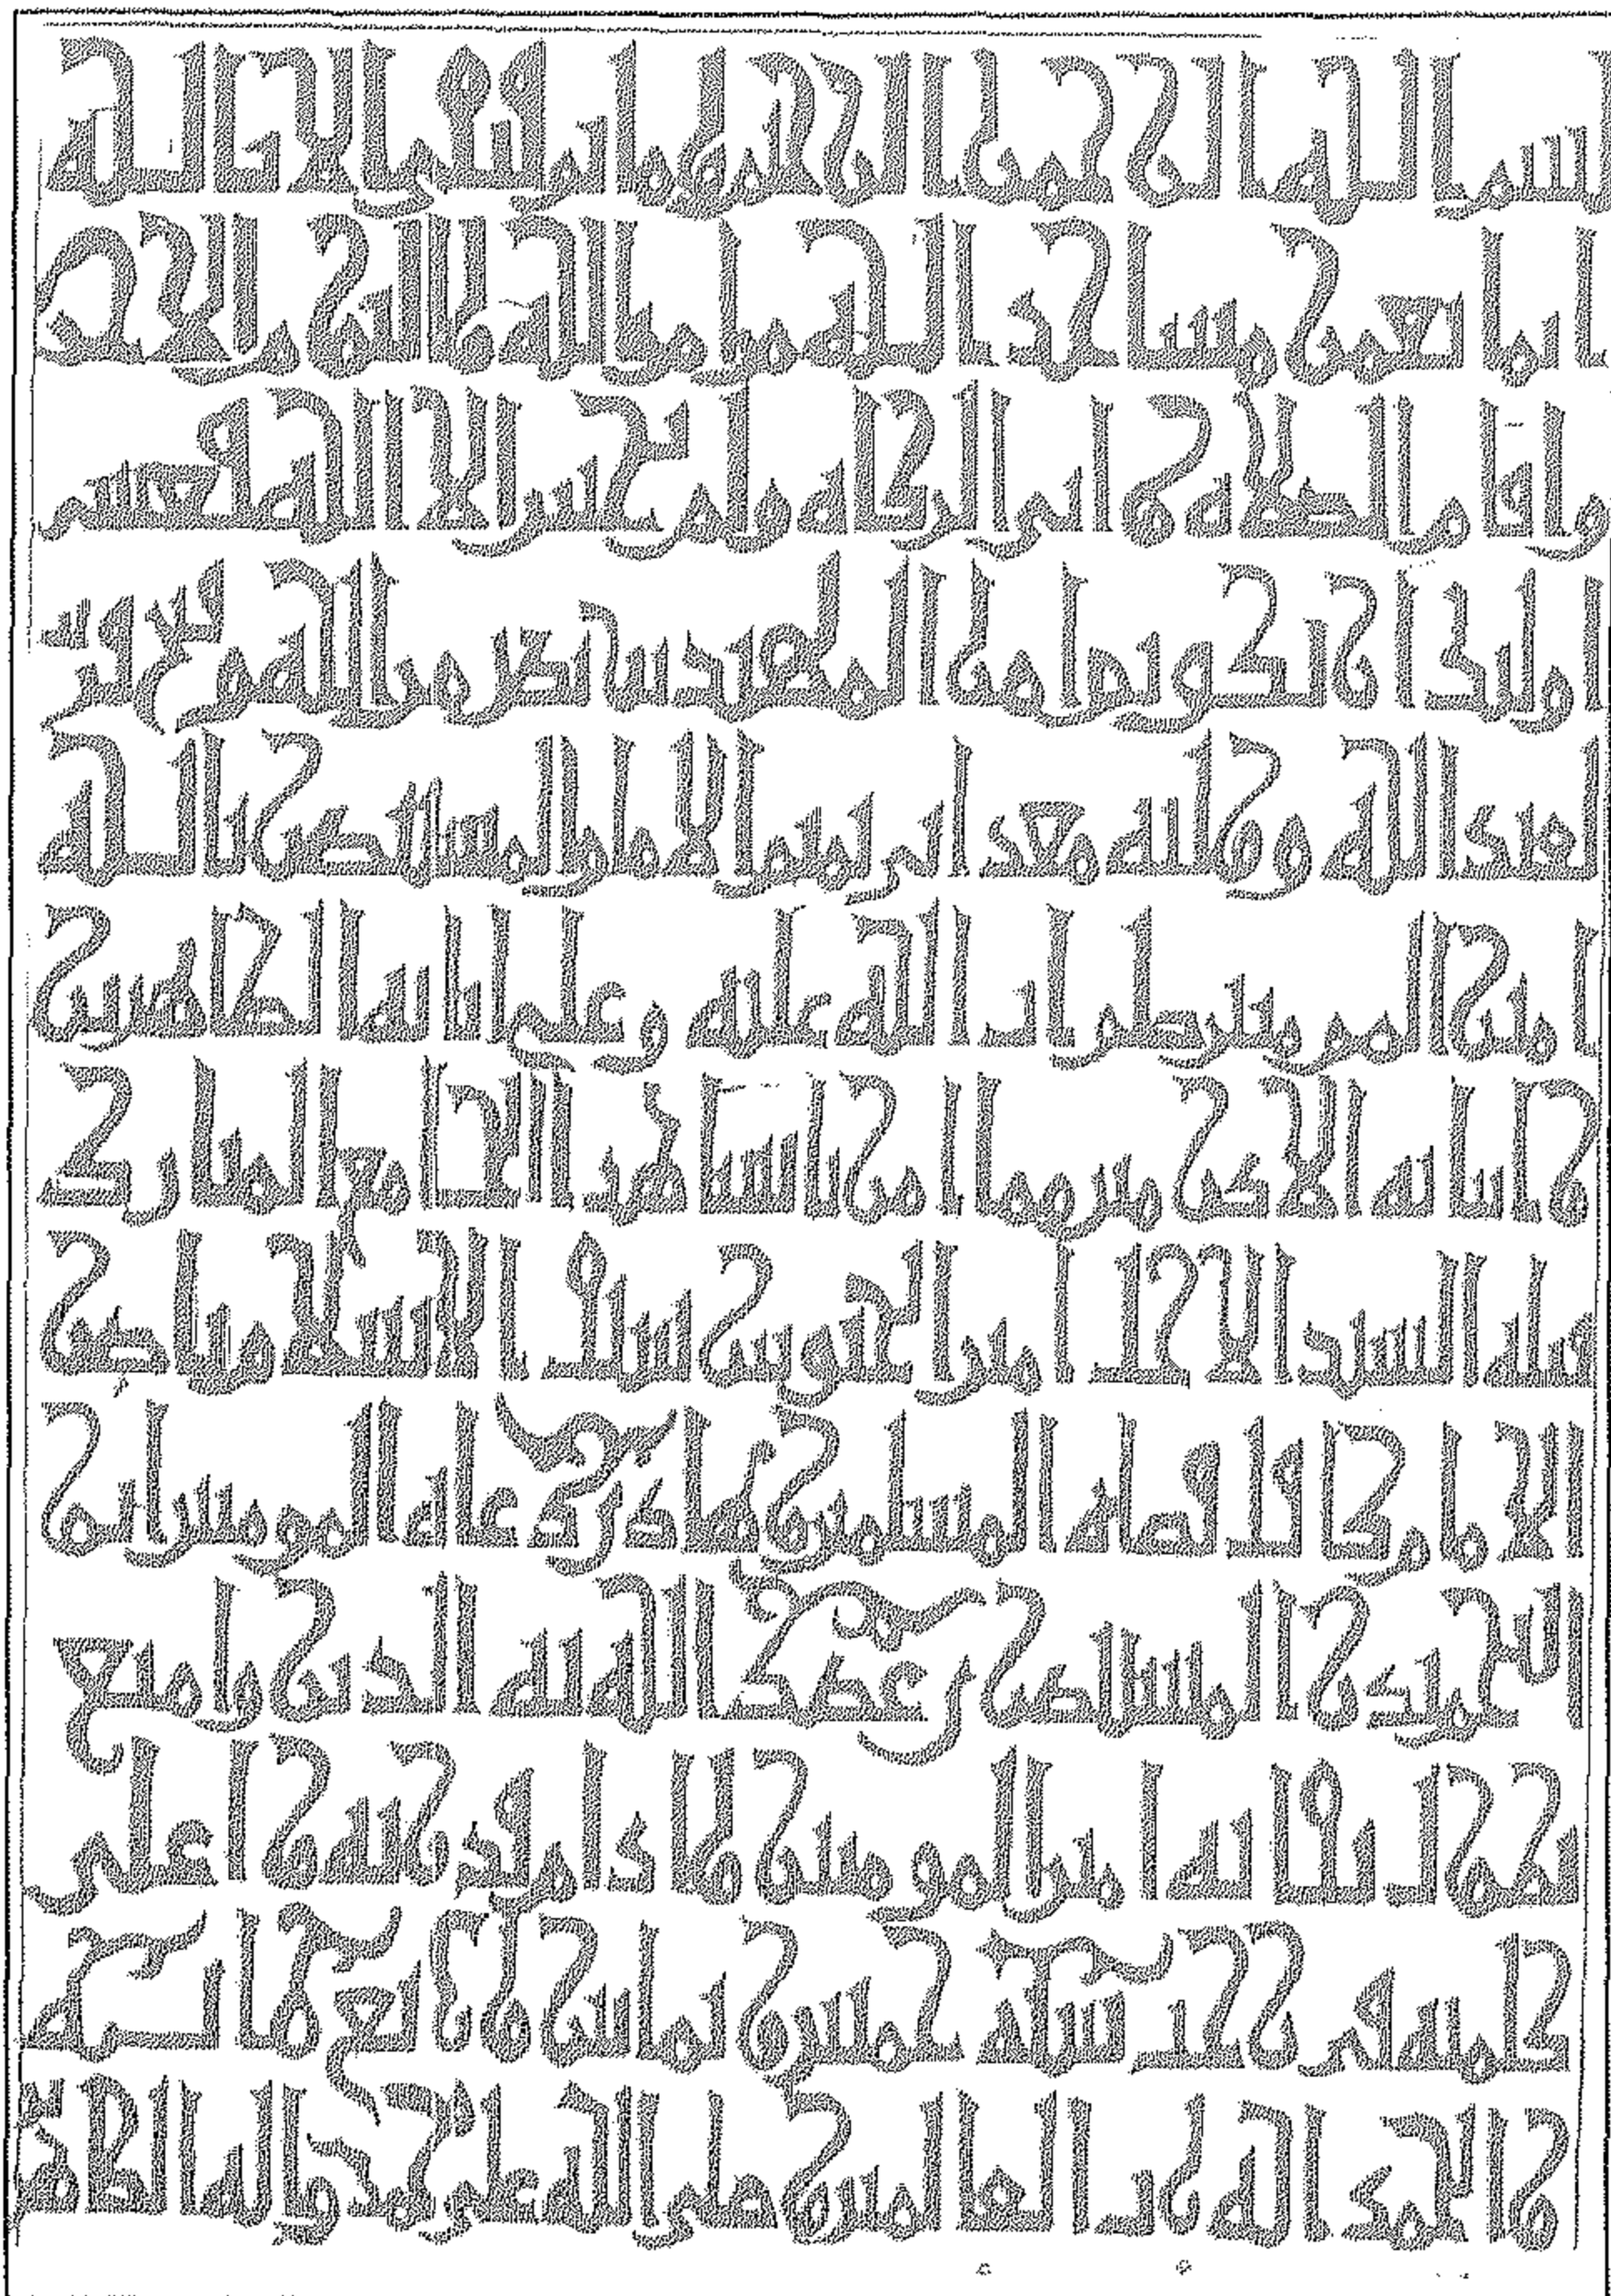 بسم الله الرحمن الرحيم وما توفيقي الا بالله
انما يعمر مساجد الله من امن بالله واليوم الاخر
واقام الصلاة واتى الزكاة ولم يخش الا الله فعسى
اولئك ان يكونوا من المهتدين نصر من الله وفتح قريب
لعبد الله ووليه معد ابي تميم الامام المستنصر بالله
امير المؤمنين صلوات الله عليه وعلى ابائه الطاهرين
وابنائه الاكرمين مما امر بانشاء هذا الجامع المبارك
فتاه السيد الاجل امير الجيوش سيف الاسلام ناصر
الامام كافل قضاة المسلمين وهادي دعاة المؤمنين ابو
النجم بدر المستنصري عضد الله به الدين وامتع
بطول بقائه امير المؤمنين وادام قدرته واعلى
كلمته في سنة
والحمد لله رب العالمين وصلى الله على محمد واله